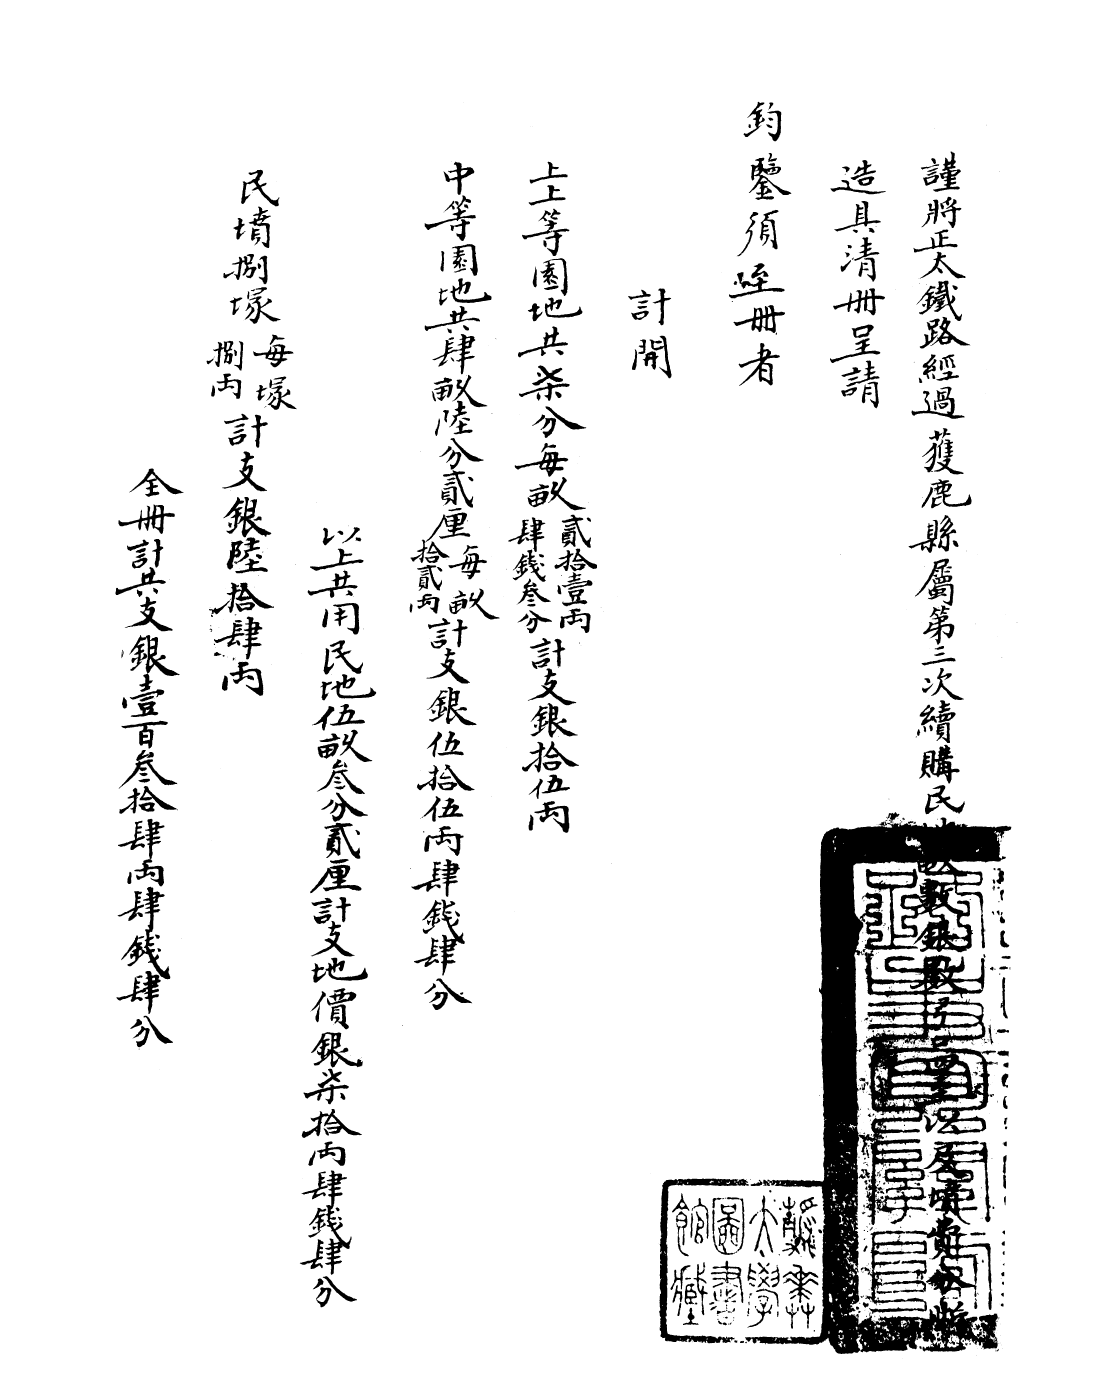 謹將正太鐵路經過獲鹿縣屬第三次續購民地畝數銀數弓口四至以及墳費分晰
造具清冊呈請
鈞鑒須至冊者
計開
上上等園地共柒分每畝貳拾壹兩肆錢叁分計支銀拾伍兩
中等園地共肆畝陸分貳厘每畝拾貳兩計支銀伍拾伍兩肆錢肆分
以上共用民地伍畝叁分貳厘計支地價銀柒拾兩肆錢肆分
民墳捌塚每塚捌兩計支銀陸拾肆兩
全冊計共支銀壹百叁拾肆兩肆錢肆分
大學
圖書
館藏